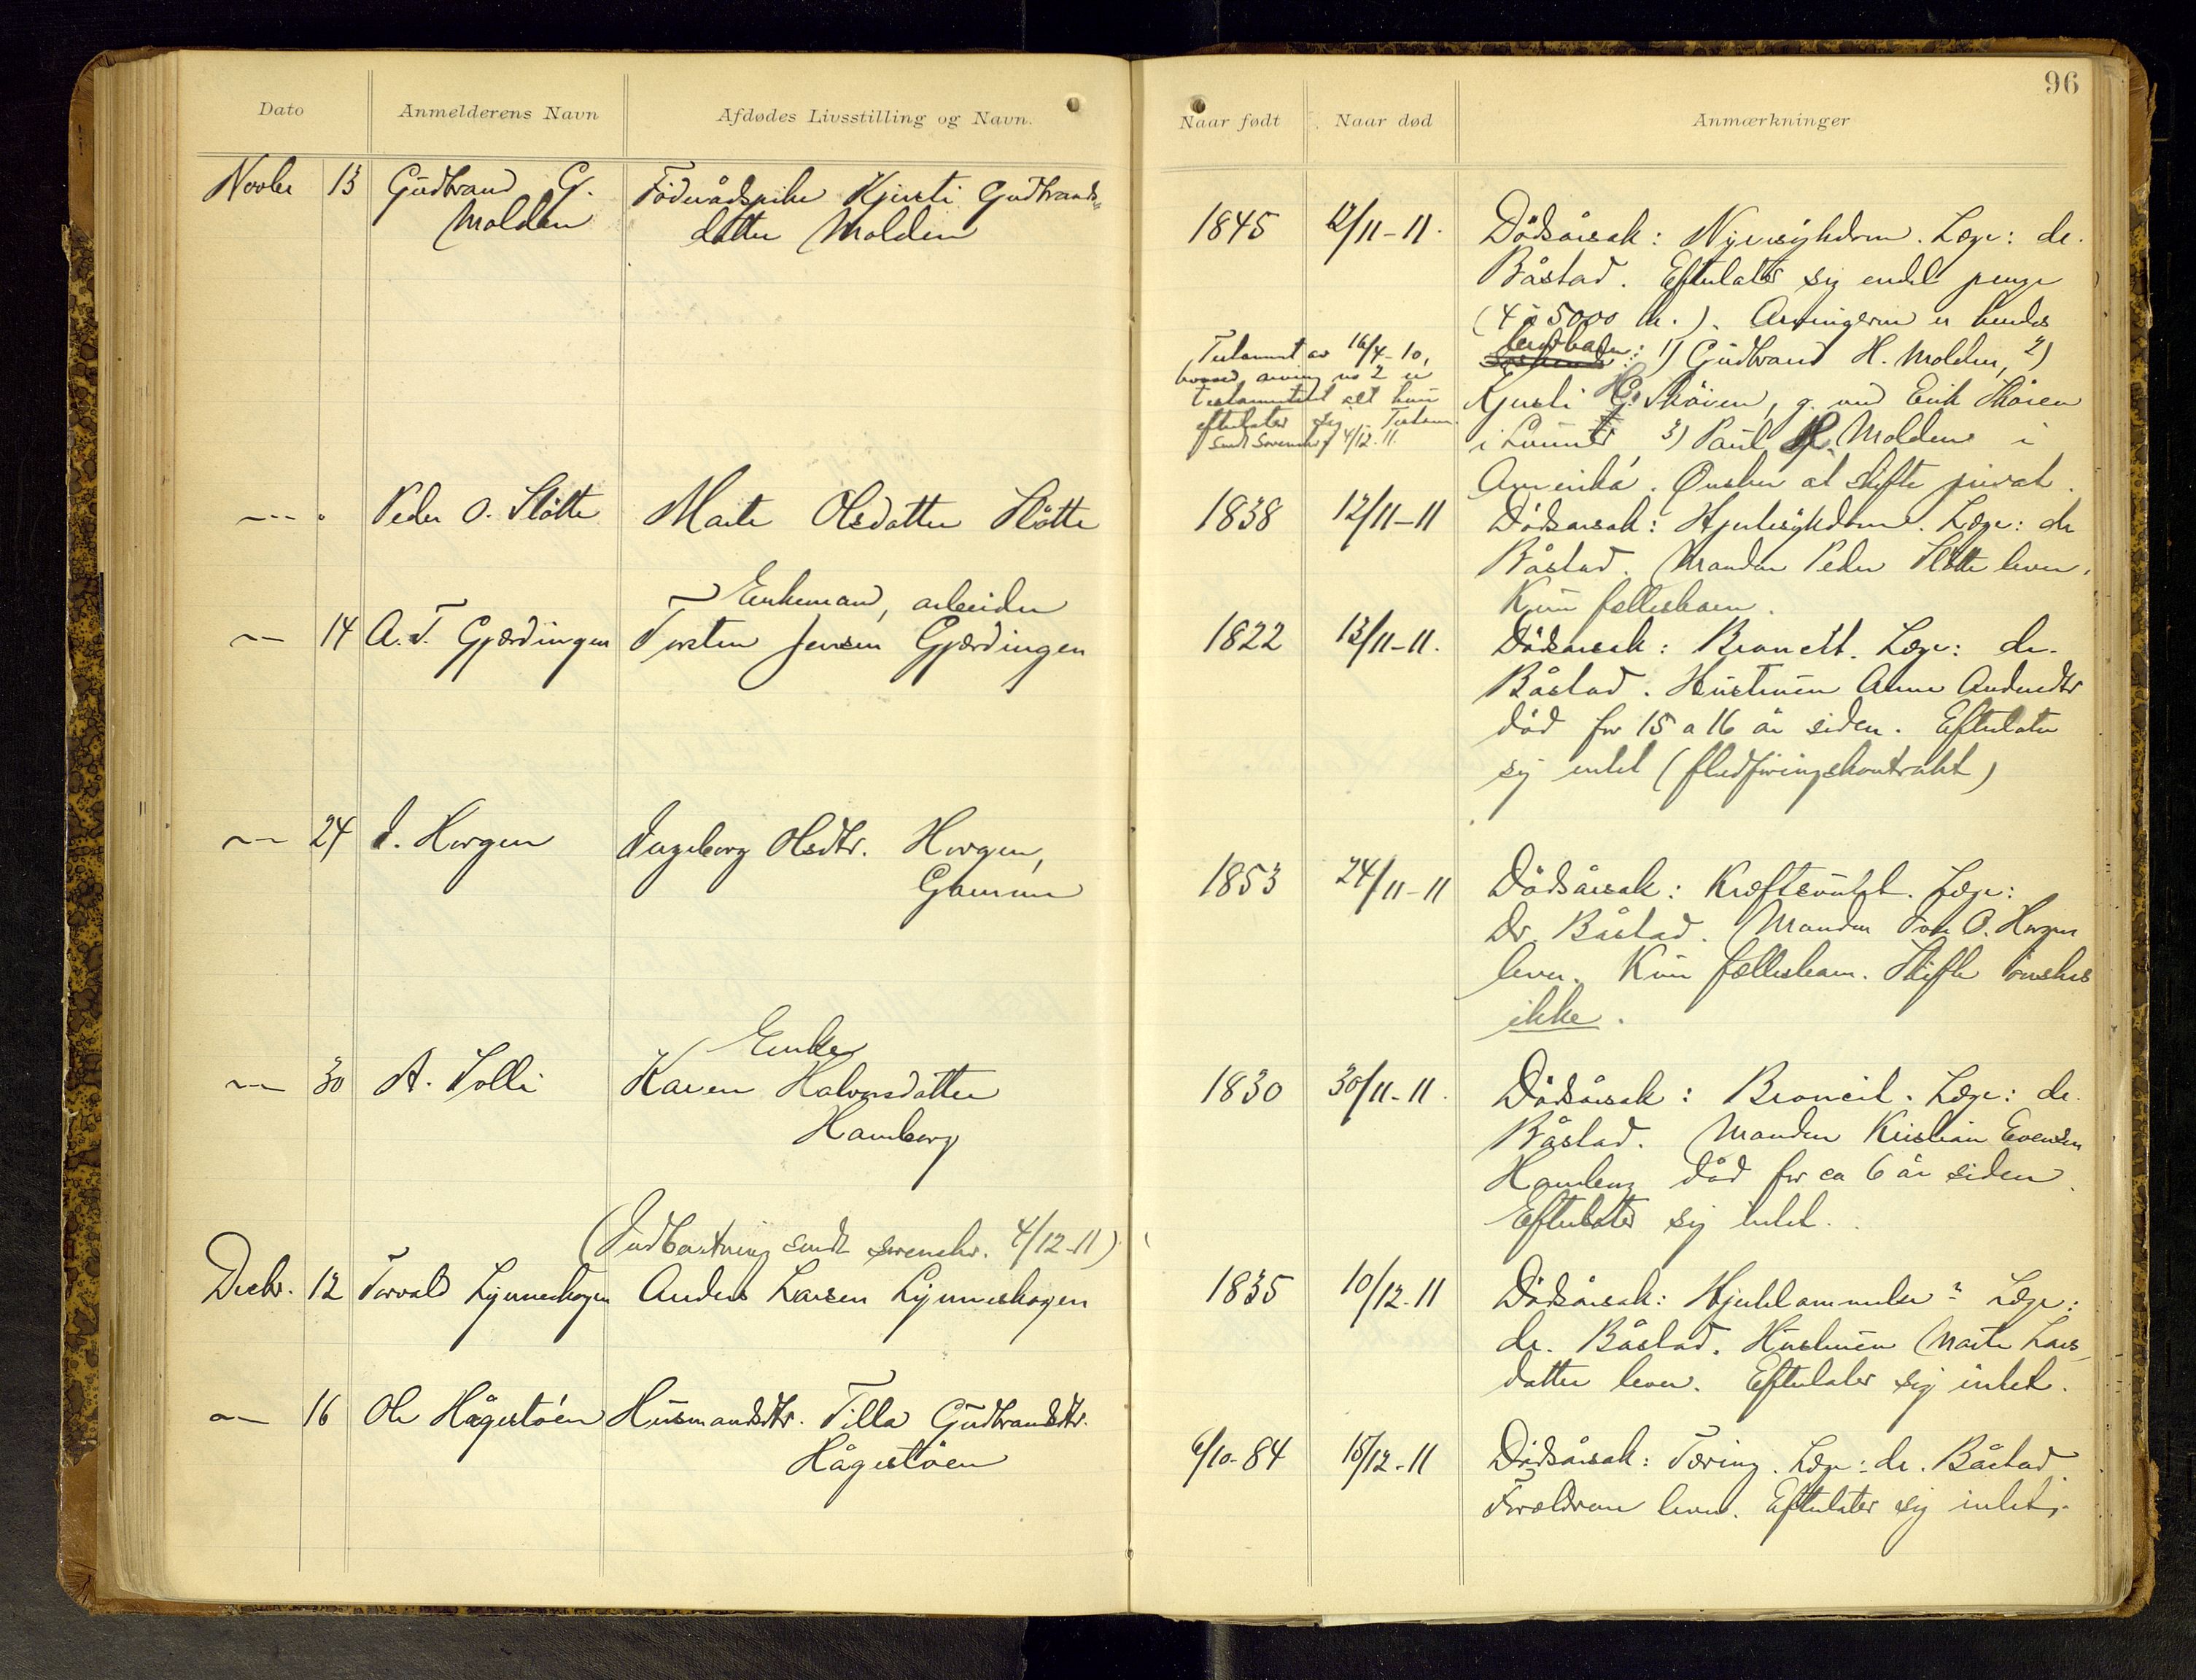 96
Dato Anmelderens Navn Afdødes Livsstilling og Navn. Naar født Naar død Anmærkninger
Novbr 13 Gudbrand G. Føderådspike Kjersti Gudbrands-
Molden datter Molden
1845 12/11-11. Dödsårsak: Nyresykdom. Læge: dr.
Båstad. Efterlater sig endel penge
(4 à 5000 kr.). Arvingerne er hendes
Testament av 16/4-10,
hvorved arving no 2 er
testamentert alt hun
efterlater sig. Testam.
sendt sorenskr. 4/12.11.
søskendebarn: 1) Gudbrand H. Molden, 2)
Kjersti H. Skåren, g. med Erik Skåren
i Lunner, 3) Paul H. Molden i
Amerika. Ønsker at skifte privat.
-"- Peder O. Slåtte Marte Olsdatter Slåtte 1838 12/11-11 Dödsarsak: Hjertesykdom. Læge: dr
Båstad. Manden Peder Slåtte lever.
Kun fællesbarn.
Enkemand, arbeider
-"- 14 A. T. Gjærdingen Torsten Jensen Gjærdingen 1822 13/11-11. Dödsarsak: Broncit. Læge: dr.
Båstad. Hustruen Anne Andersdtr
död for 15 a 16 år siden. Efterlater
sig intet (fledføringskontrakt)
-"- 24 I. Horgen Ingeborg Olsdtr. Horgen,
Gamme
1853 24/11-11 Dödsårsak: Kræftsvulst. Læge:
Dr. Båstad. Manden Iver O. Horgen
lever. Kun fællesbarn. Skifte önskes
ikke.
Enke
-"- 30 A. Solli Karen Halvorsdatter
Hamberg
1830 30/11-11. Dödsårsak: Broncit. Læge: dr.
Båstad. Manden Kristian Evensen
Hamberg död for ca 6 år siden.
Efterlater sig intet.
(Indberetning sendt sorenskr. 4/12-11)
Decbr. 12 Torvald Lynneshagen Anders Larsen Lynneshagen 1835 10/12-11 Dödsårsak: Hjertelammelse? Læge:
dr. Båstad. Hustruen Marte Lars-
datter lever. Efterlater sig intet.
-"- 16 Ole Hågestöen Husmandsdtr. Tilla Gudbrandsdtr.
Hågestöen
6/10-84 15/12-11 Dödsårsak: Tæring. Læge: dr. Båstad
Forældrene lever. Efterlater sig intet.